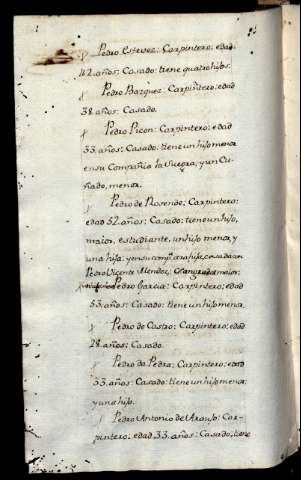 Pedro Estevez: Carpintero: edad
42. años: Casado: tiene quatro hijos.
Pedro Bazquez: Carpintero: edad
38. años: Casado.
Pedro Picon: Carpintero: edad
33. años: Casado: tiene un hijo menor
en su Compañia la Suegra, y un Cu-
ñado, menor.
Pedro de Rosendo: Carpintero:
edad 52. años: Casado: tiene un hijo,
maior, estudiante, un hijo menor, y
una hija: y en su comp.ª otra hija, casada con
Pedro Vicente Mendez,
Pedro Garcia: Carpintero: edad
53. años: Casado: tiene un hijo menor.
Pedro de Castro: Carpintero: edad
28. años: Casado.
Pedro da Pedra: Carpintero: edad
33. años: Casado: tiene un hijo menor,
y una hija.
Pedro Antonio de Araujo: Car-
pintero: edad, 33. años: Casado, tiene